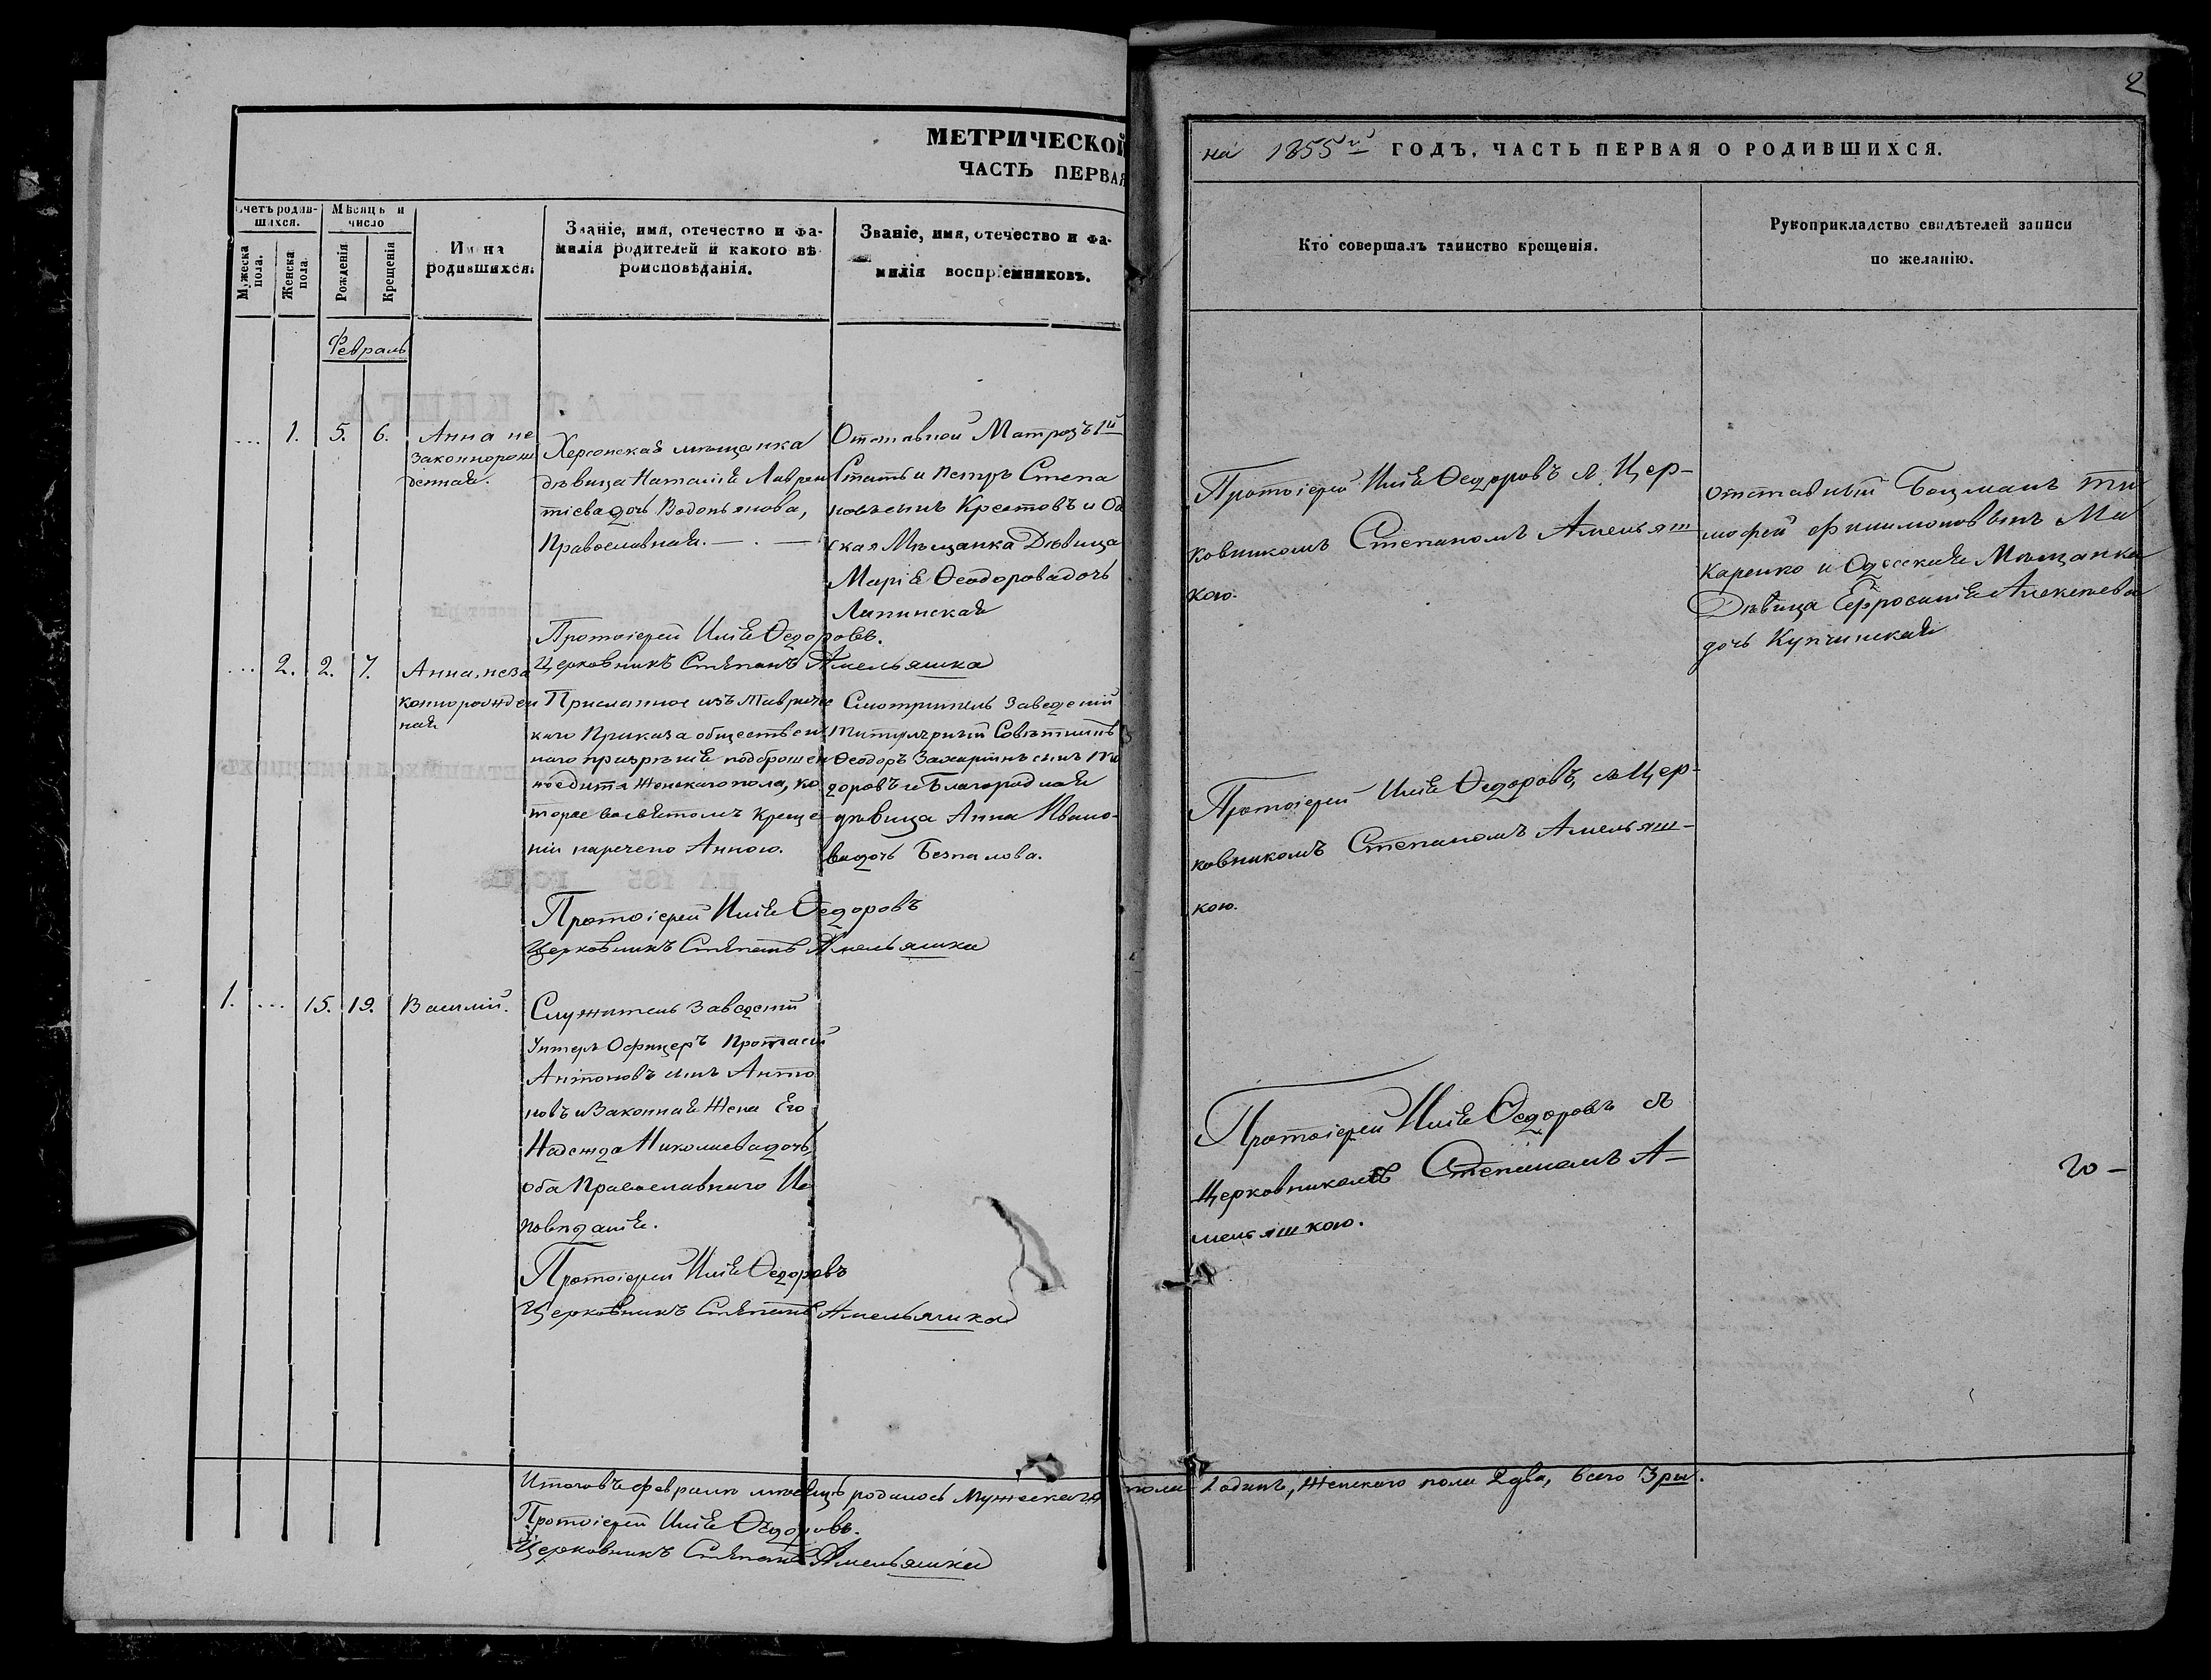 2
МЕТРИЧЕСКОЙ
ЧАСТЬ ПЕРВАЯ
на 1855й ГОДЪ, ЧАСТЬ ПЕРВАЯ О РОДИВШИХСЯ.
Счетъ родив-
шихся.
Мужеска
пола.
Женска
пола.
Мѣсяцъ и
число
Рожденія
Крещенія
Имена
родившихся.
Званіе, имя, отечество и фа-
милія родителей и какого вѣ-
роисповѣданія.
Званіе, имя, отечество и фа-
милія воспріемниковъ.
Кто совершалъ таинство крещенія.
Рукоприкладство свидѣтелей записи
по желанію.
Февраль
... 1. 5. 6.
Анна не
законнорож
денная.
Херсонская мѣщанка
дѣвица Наталія Лаврен
тіева дочь Водопьянова,
Православная. — . —
Отставной Матрозъ 1й
Статьи Петръ Степа
новъ сынъ Крестовъ и Од
ская Мѣщанка Дѣвица
Марія Ѳеодорова дочь
Лапинская
Протоіерей Илія Ѳедоровъ съ Цер-
ковникомъ Степаномъ Амельяш
кою.
отставный Боцманъ Ти
мофей Филимоновъ сынъ Ма
каренко и Одесская Мѣщанка
Дѣвица Ефросинія Алексѣева
дочь Купчинская
Протоіерей Илія Ѳедоровъ.
Церковникъ Степанъ Амельяшка
... 2. 2. 7.
Анна, неза
коннорожден
ная
Присланное изъ Тавриче
каго Приказа обществен
наго призрѣнія подброшен
ное дитя Женскаго пола, ко
торое во святомъ Креще
ніи наречено Анною.
Смотритель Заведеній
Титулярный Совѣтникъ
Ѳеодоръ Захаріинъ сынъ
доровъ и Благородная
дѣвица Анна Ивано-
ва дочь Безпалова.
Протоіерей Илія Ѳедоровъ, съ Цер-
ковникомъ Степаномъ Амельяш-
кою.
Протоіерей Илія Ѳедоровъ
Церковникъ Степанъ Амельяшка
1. ... 15. 19.
Василій.
Служитель Заведеній
Унтеръ Офицеръ Протасій
Антоновъ сынъ Анто
новъ и Законная Жена Его
Надежда Николаева дочь,
оба Православнаго Ис
повѣданія.
Протоіерей Илія Ѳедоровъ съ
Церковникомъ Степаномъ А-
мельяшкою.
20 –
Протоіерей Илія Ѳедоровъ
Церковникъ Степанъ Амельяшка
Итого въ Февралѣ мѣсяцѣ родилось Мужескаго пола 1 одинъ, Женскаго пола 2 два, всего 3 ри.
Протоіерей Илія Ѳедоровъ.
Церковникъ Степанъ Амельяшка